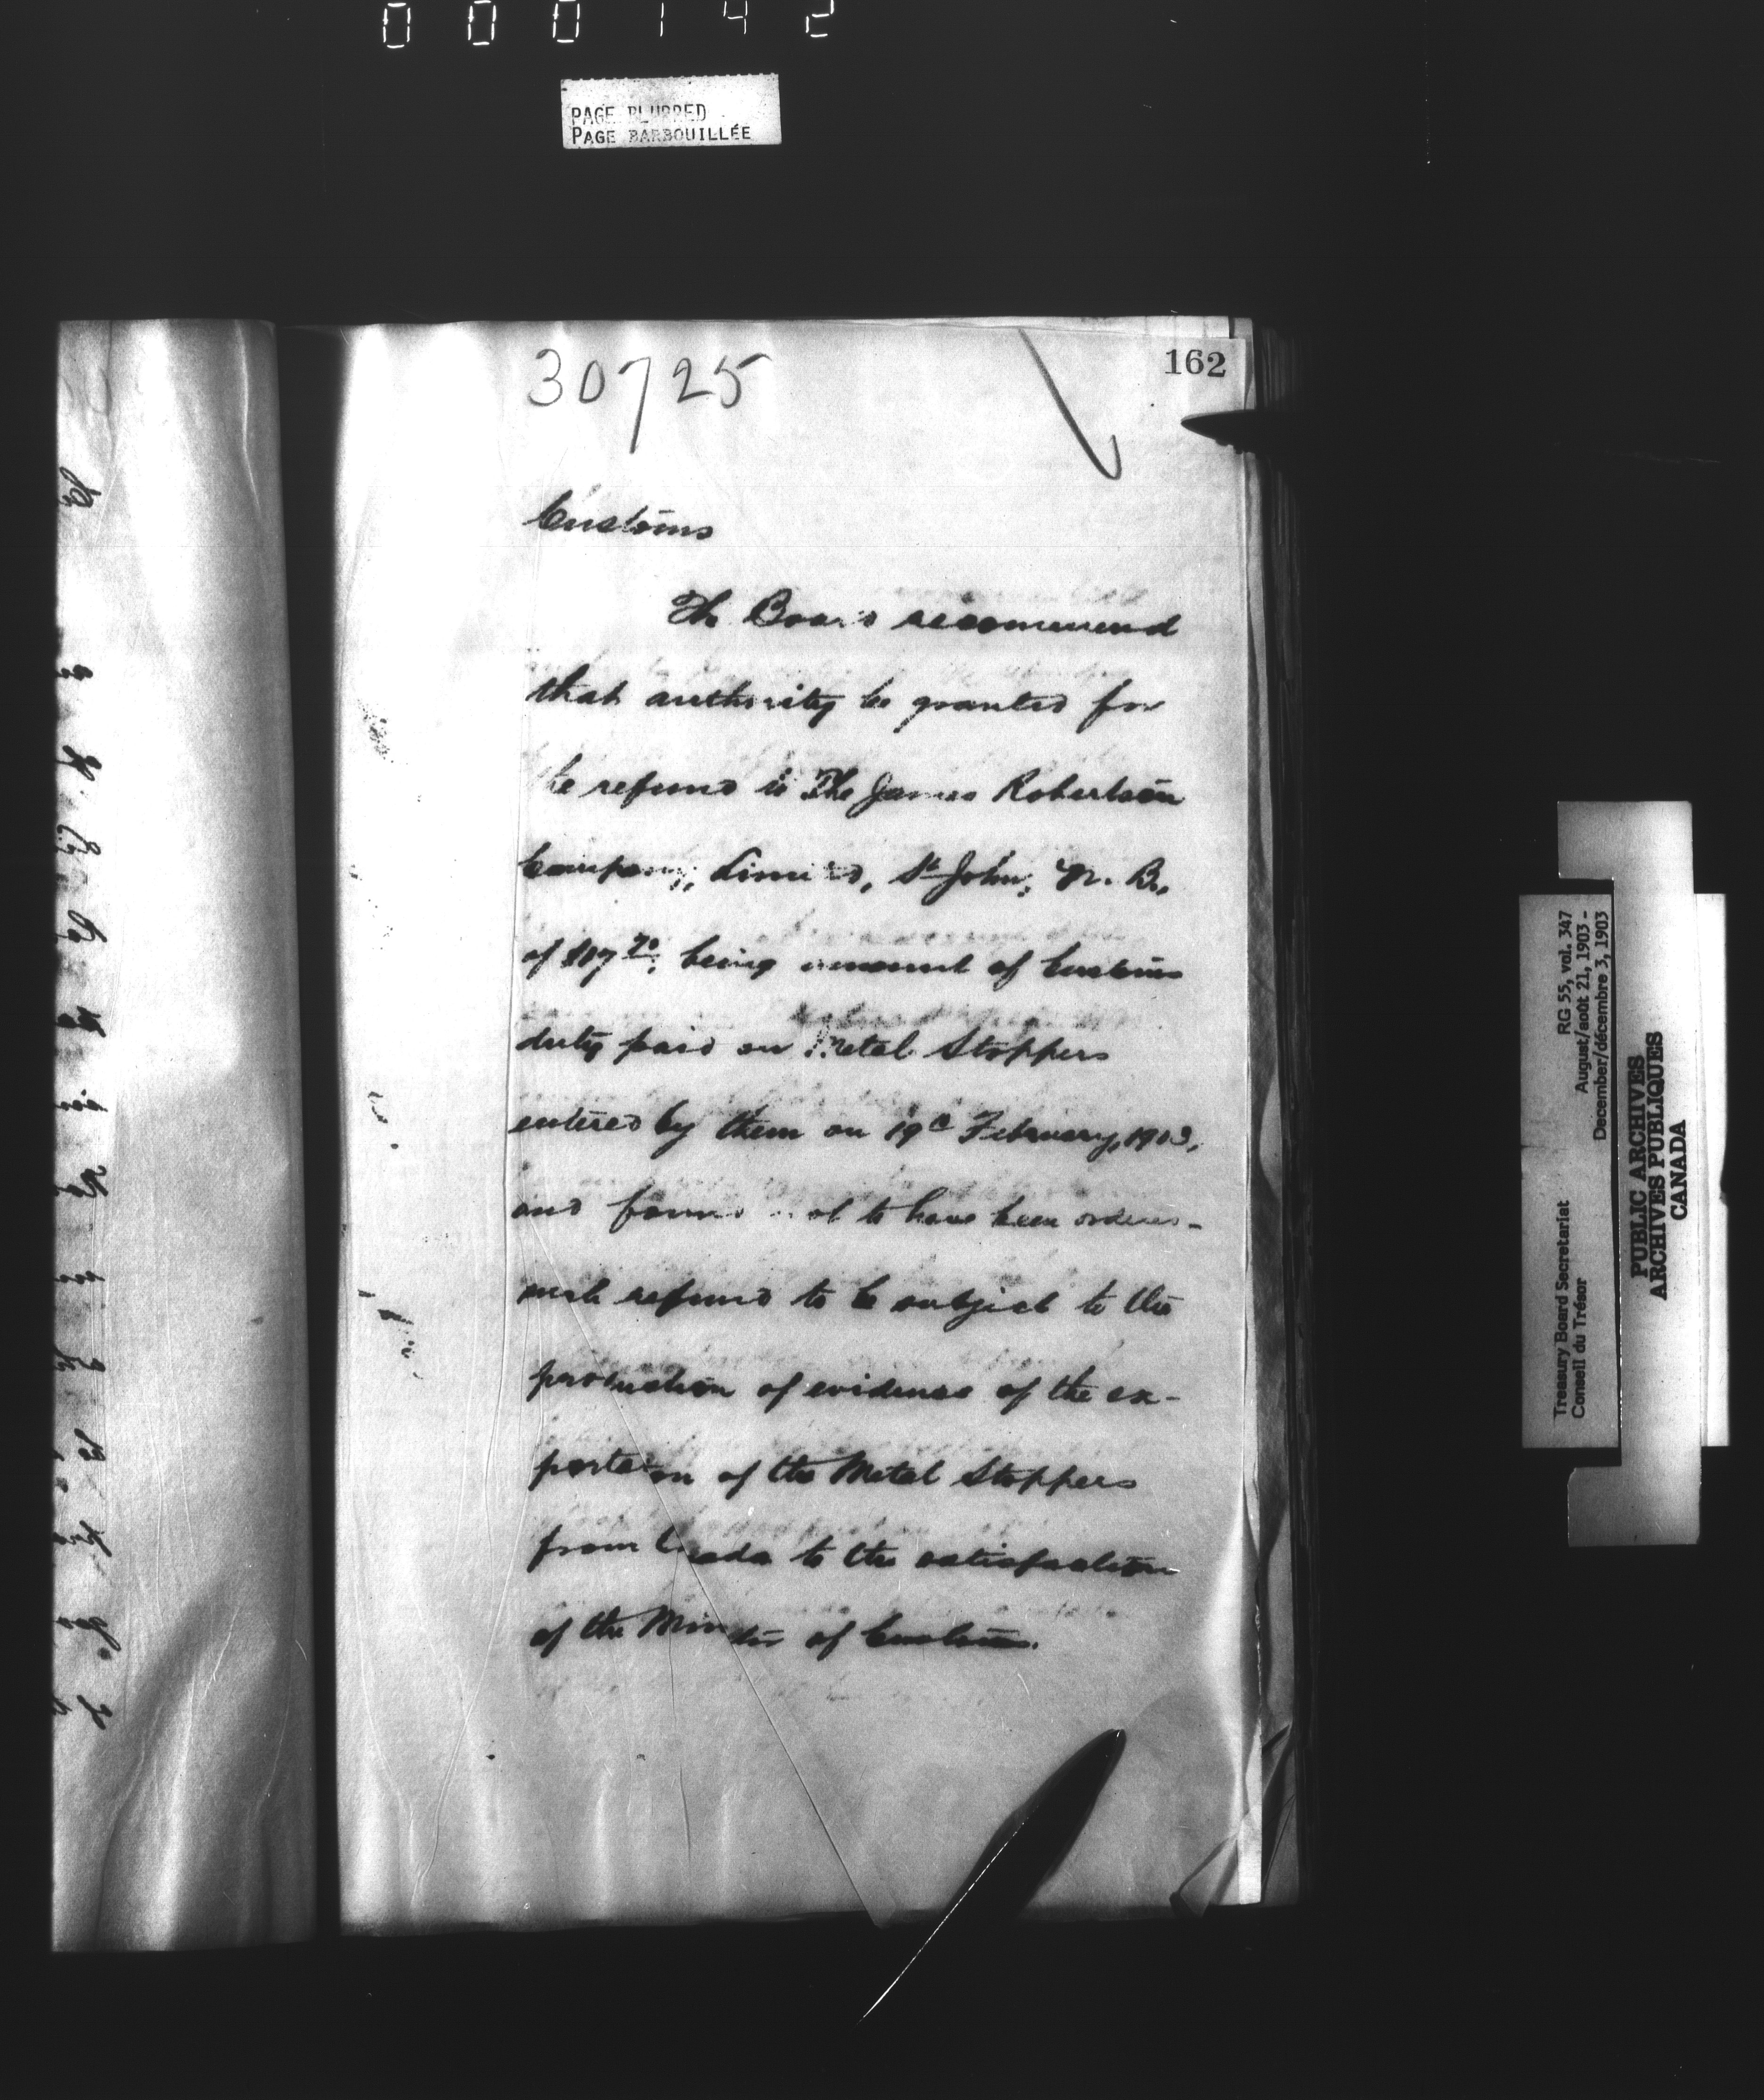 000142
PAGE BLURRED
PAGE BARBOUILLÉE
162
30725
Customs
The Board recommend
that authority be granted for
the refund to The James Robertson
Company, Limited, St John, N. B.,
of being amount of Customs
duty paid on Metal Stoppers
entered by them on 19th February, 1903,
and found not to have been ordered -
such refund to be subject to the
production of evidence of the ex-
portation of the Metal Stoppers
from Canada to the satisfaction
of the Minister of Customs.
Treasury Board Secretariat RG 55, vol. 347
Conseil du Trésor August/août 21, 1903 -
December/décembre 3, 1903
PUBLIC ARCHIVES
ARCHIVES PUBLIQUES
CANADA